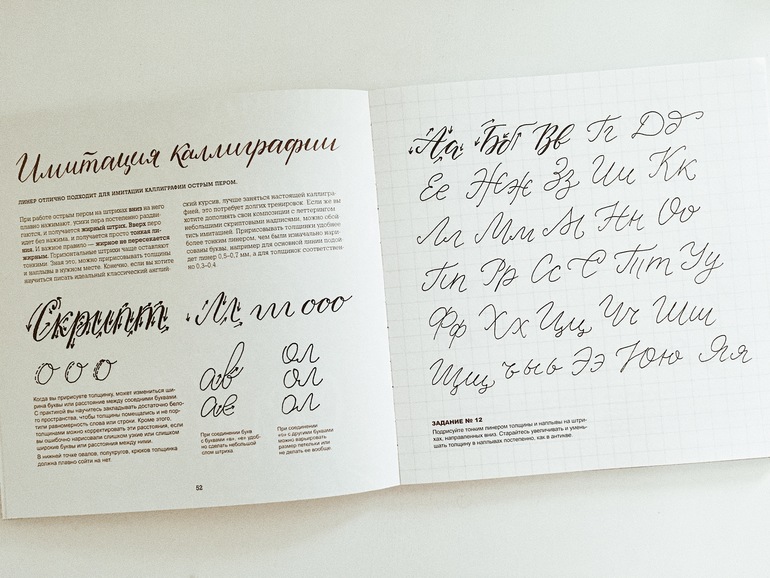 Имитация каллиграфии
ЛИНЕР ОТЛИЧНО ПОДХОДИТ ДЛЯ ИМИТАЦИИ КАЛЛИГРАФИИ ОСТРЫМ ПЕРОМ.
При работе острым пером на штрихах вниз на него
плавно нажимают, усики пера постепенно раздви-
гаются, и получается жирный штрих. Вверх перо
идет без нажима, и получается просто тонкая ли-
ния. И важное правило — жирное не пересекается
жирным. Горизонтальные штрихи чаще оставляют
тонкими. Зная это, можно пририсовывать толщины
и наплывы в нужном месте. Конечно, если вы хотите
научиться писать идеальный классический англий-
ский курсив, лучше заняться настоящей каллигра-
фией, это потребует долгих тренировок. Если же вы
хотите дополнять свои композиции с леттерингом
небольшими скриптовыми надписями, можно обой-
тись имитацией. Пририсовывать толщины удобнее
более тонким линером, чем были изначально нари-
сованы буквы, например для основной линии подой-
дет линер 0,5–0,7 мм, а для толщинок соответствен-
но 0,3–0,4
Скрипт Лл ııı ooo
о о о
ав ол
ав ол
ав ол
Когда вы пририсуете толщину, может измениться ши-
рина буквы или расстояние между соседними буквами.
С практикой вы научитесь закладывать достаточно бело-
го пространства, чтобы толщины помещались и не пор-
тили равномерность слова или строки. Кроме этого,
толщинами можно корректировать эти расстояния, если
вы ошибочно нарисовали слишком узкие или слишком
широкие буквы или расстояния между ними.
В нижней точке овалов, полукругов, крюков толщинка
должна плавно сойти на нет.
При соединении букв
с буквами «в», «е» удоб-
но сделать небольшой
слом штриха.
При соединении
«о» с другими буквами
можно варьировать
размер петельки или
не делать ее вообще.
52
Аа Бб Вв Гг Дд
Ее Жж Зз Ии Кк
Лл Мм Лл Нн Оо
Пп Рр Сс С Тт Уу
Фф Хх Цц Чч Шш
Щщ ъ ы ь Ээ Юю Яя
ЗАДАНИЕ № 12
Подрисуйте тонким линером толщины и наплывы на штри-
хах, направленных вниз. Старайтесь увеличивать и умень-
шать толщину в наплывах постепенно, как в антикве.